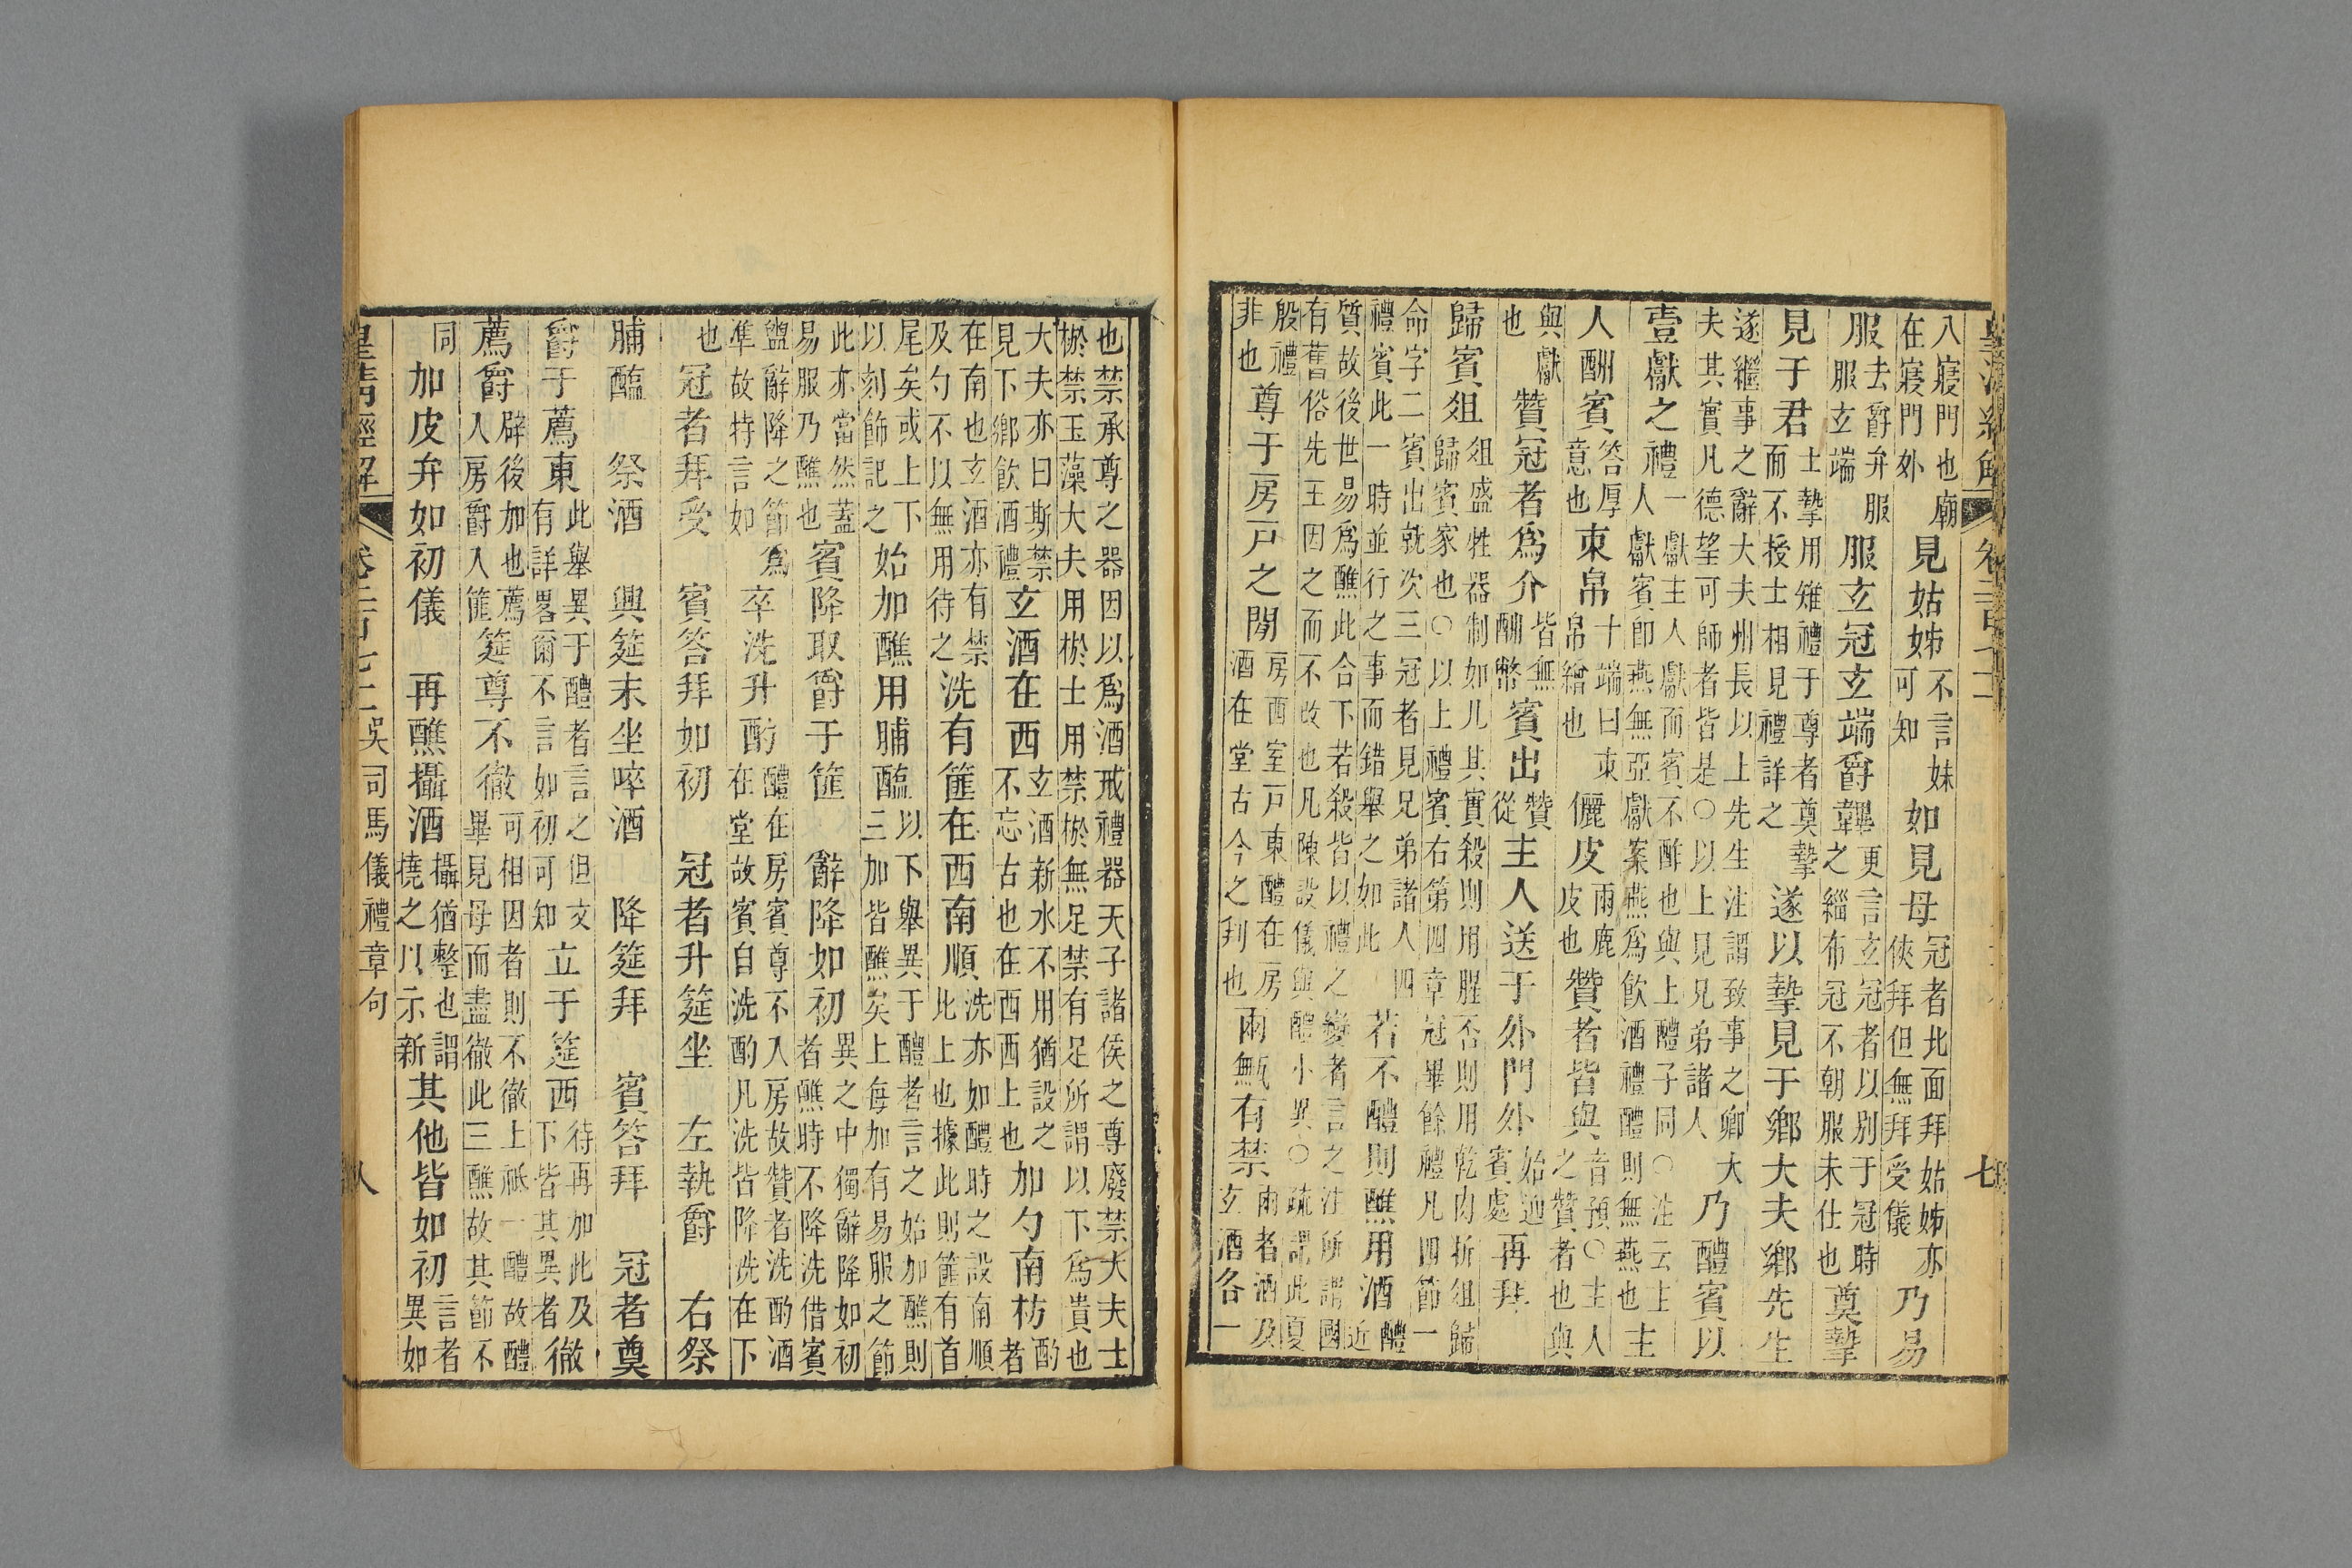 皇清經解 卷二百七十二 七
入寢門也廟在寢門外見姑姊不言妹可知如見母冠者北面拜姑姊亦俠拜但無拜受儀乃易
服去爵弁服服玄端服玄冠玄端爵韠更言玄冠者以別于冠時之緇布冠不朝服未仕也奠摯
見于君士摯用雉禮于尊者奠摯而不授士相見禮詳之遂以摯見于鄉大夫鄉先生
遂繼事之辭大夫州長以上先生注謂致事之卿大夫其實凡德望可師者皆是○以上見兄弟諸人乃醴賓以
壹獻之禮一獻主人獻而賓不酢也與上醴子同○注云主人獻賓卽燕無亞獻案燕爲飲酒禮醴則無燕也主
人酬賓答厚意也束帛十端曰束帛繒也儷皮兩鹿皮也贊者皆與音預○主人之贊者也與
與獻也贊冠者爲介皆無酬幣賓出贊從主人送于外門外始迎賓處再拜
歸賓俎俎盛牲器制如几其實殺則用腥否則用乾肉折俎歸歸賓家也○以上禮賓右第四章冠畢餘禮凡四節一
命字二賓出就次三冠者見兄弟諸人四禮賓此一時並行之事而錯舉之如此若不醴則醮用酒醴近
質故後世易爲醮此合下若殺皆以禮之變者言之注所謂國有舊俗先王因之而不改也凡陳設儀與醴小異○疏謂此夏
殷禮非也尊于房戶之閒房西室戶東醴在房酒在堂古今之判也兩甒有禁兩者酒及玄酒各一
也禁承尊之器因以爲酒戒禮器天子諸侯之尊廢禁大夫士棜禁玉藻大夫用棜士用禁棜無足禁有足所謂以下爲貴也
大夫亦曰斯禁見下鄉飲酒禮玄酒在西玄酒新水不用猶設之不忘古也在西西上也加勺南枋酌者
在南也玄酒亦有禁及勺不以無用待之洗有篚在西南順洗亦如醴時之設南順此上也據此則篚有首
尾矣或上下以刻飾記之始加醮用脯醢以下舉異于醴者言之始加醮則三加皆醮矣上每加有易服之節
此亦當然蓋易服乃醮也賓降取爵于篚 辭降如初異之中獨辭降如初者醮時不降洗借賓
盥辭降之節爲準故特言如卒洗升酌醴在房賓尊不入房故贊者洗酌酒在堂故賓自洗酌凡洗皆降洗在下
也冠者拜受 賓答拜如初 冠者升筵坐 左執爵 右祭
脯醢 祭酒 興筵末坐啐酒 降筵拜 賓答拜 冠者奠
爵于薦東此舉異于醴者言之但文有詳畧爾不言如初可知立于筵西待再加此及下皆其異者徹
薦爵辟後加也薦入房爵入篚筵尊不徹可相因者則不徹上祗一醴故醴畢見母而盡徹此三醮故其節不
同加皮弁如初儀 再醮攝酒攝猶整也謂撓之以示新其他皆如初言者異如
皇清經解 卷二百七十二 吳司馬儀禮章句 八